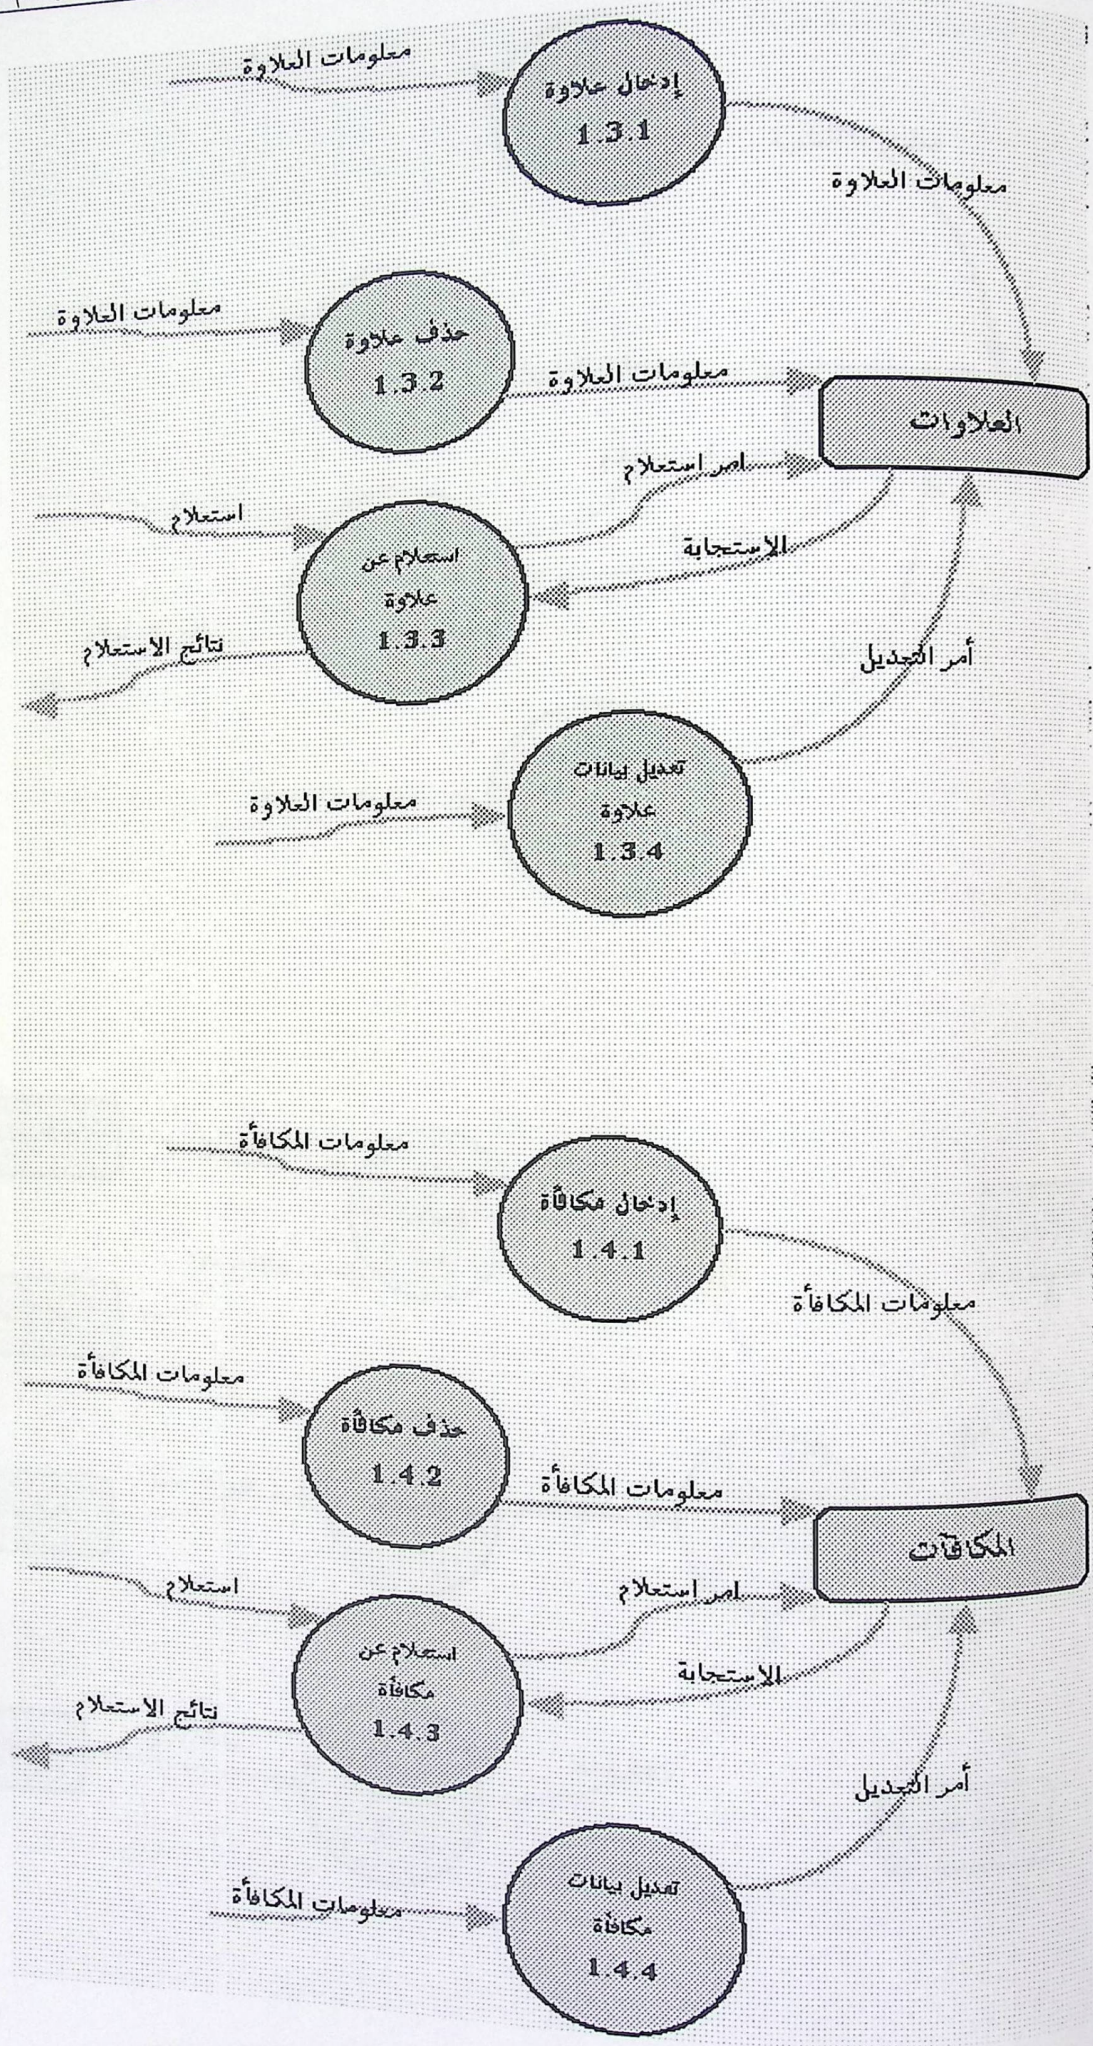 معلومات العلاوة
إدخال علاوة
1.3.1
معلومات العلاوة
معلومات العلاوة
حذف علاوة
1.3.2
معلومات العلاوة
العلاوات
امر استعلام
استعلام
استعلام عن
علاوة
1.3.3
الاستجابة
نتائج الاستعلام
أمر التعديل
تعديل بيانات
علاوة
1.3.4
معلومات العلاوة
معلومات المكافأة
إدخال مكافأة
1.4.1
معلومات المكافأة
معلومات المكافأة
حذف مكافأة
1.4.2
معلومات المكافأة
المكافآت
امر استعلام
استعلام
استعلام عن
مكافأة
1.4.3
الاستجابة
نتائج الاستعلام
أمر التعديل
تعديل بيانات
مكافأة
1.4.4
معلومات المكافأة